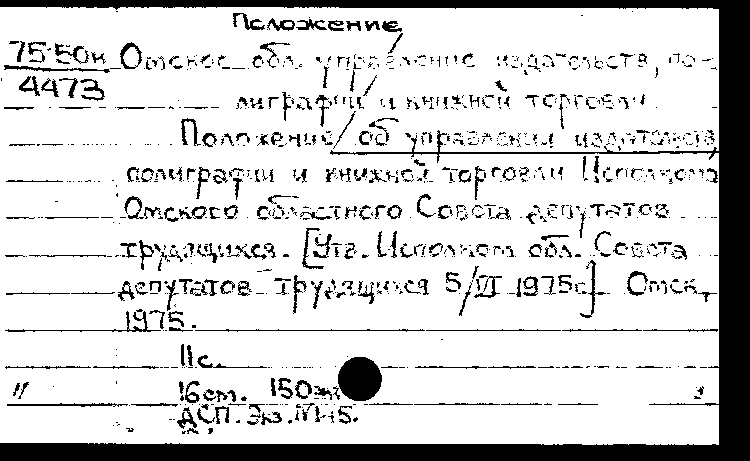 Положение
75-50к Омское обл. управление издательств, по-
4473
лиграфии и книжной торговли
Положение об управлении издательств,
полиграфии и книжной торговли Исполкома
Омского областного Совета депутатов
трудящихся. [Утв. Исполком обл. Совета
депутатов трудящихся 5/VI 1975г.] Омск,
1975.
11с.
16см. 150экз
ДСП. Экз. №45.